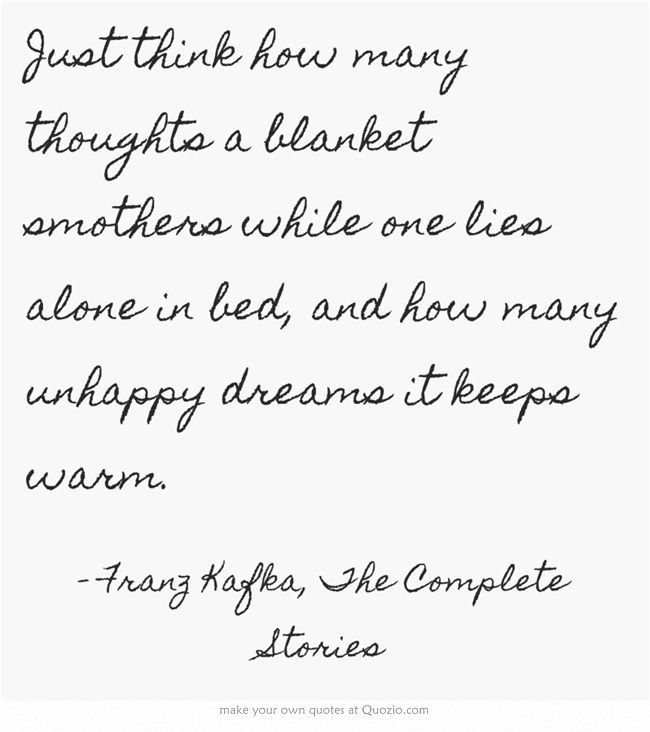 Just think how many
thoughts a blanket
smothers while one lies
alone in bed, and how many
unhappy dreams it keeps
warm.
-Franz Kafka, The Complete
Stories
make your own quotes at Quozio.com